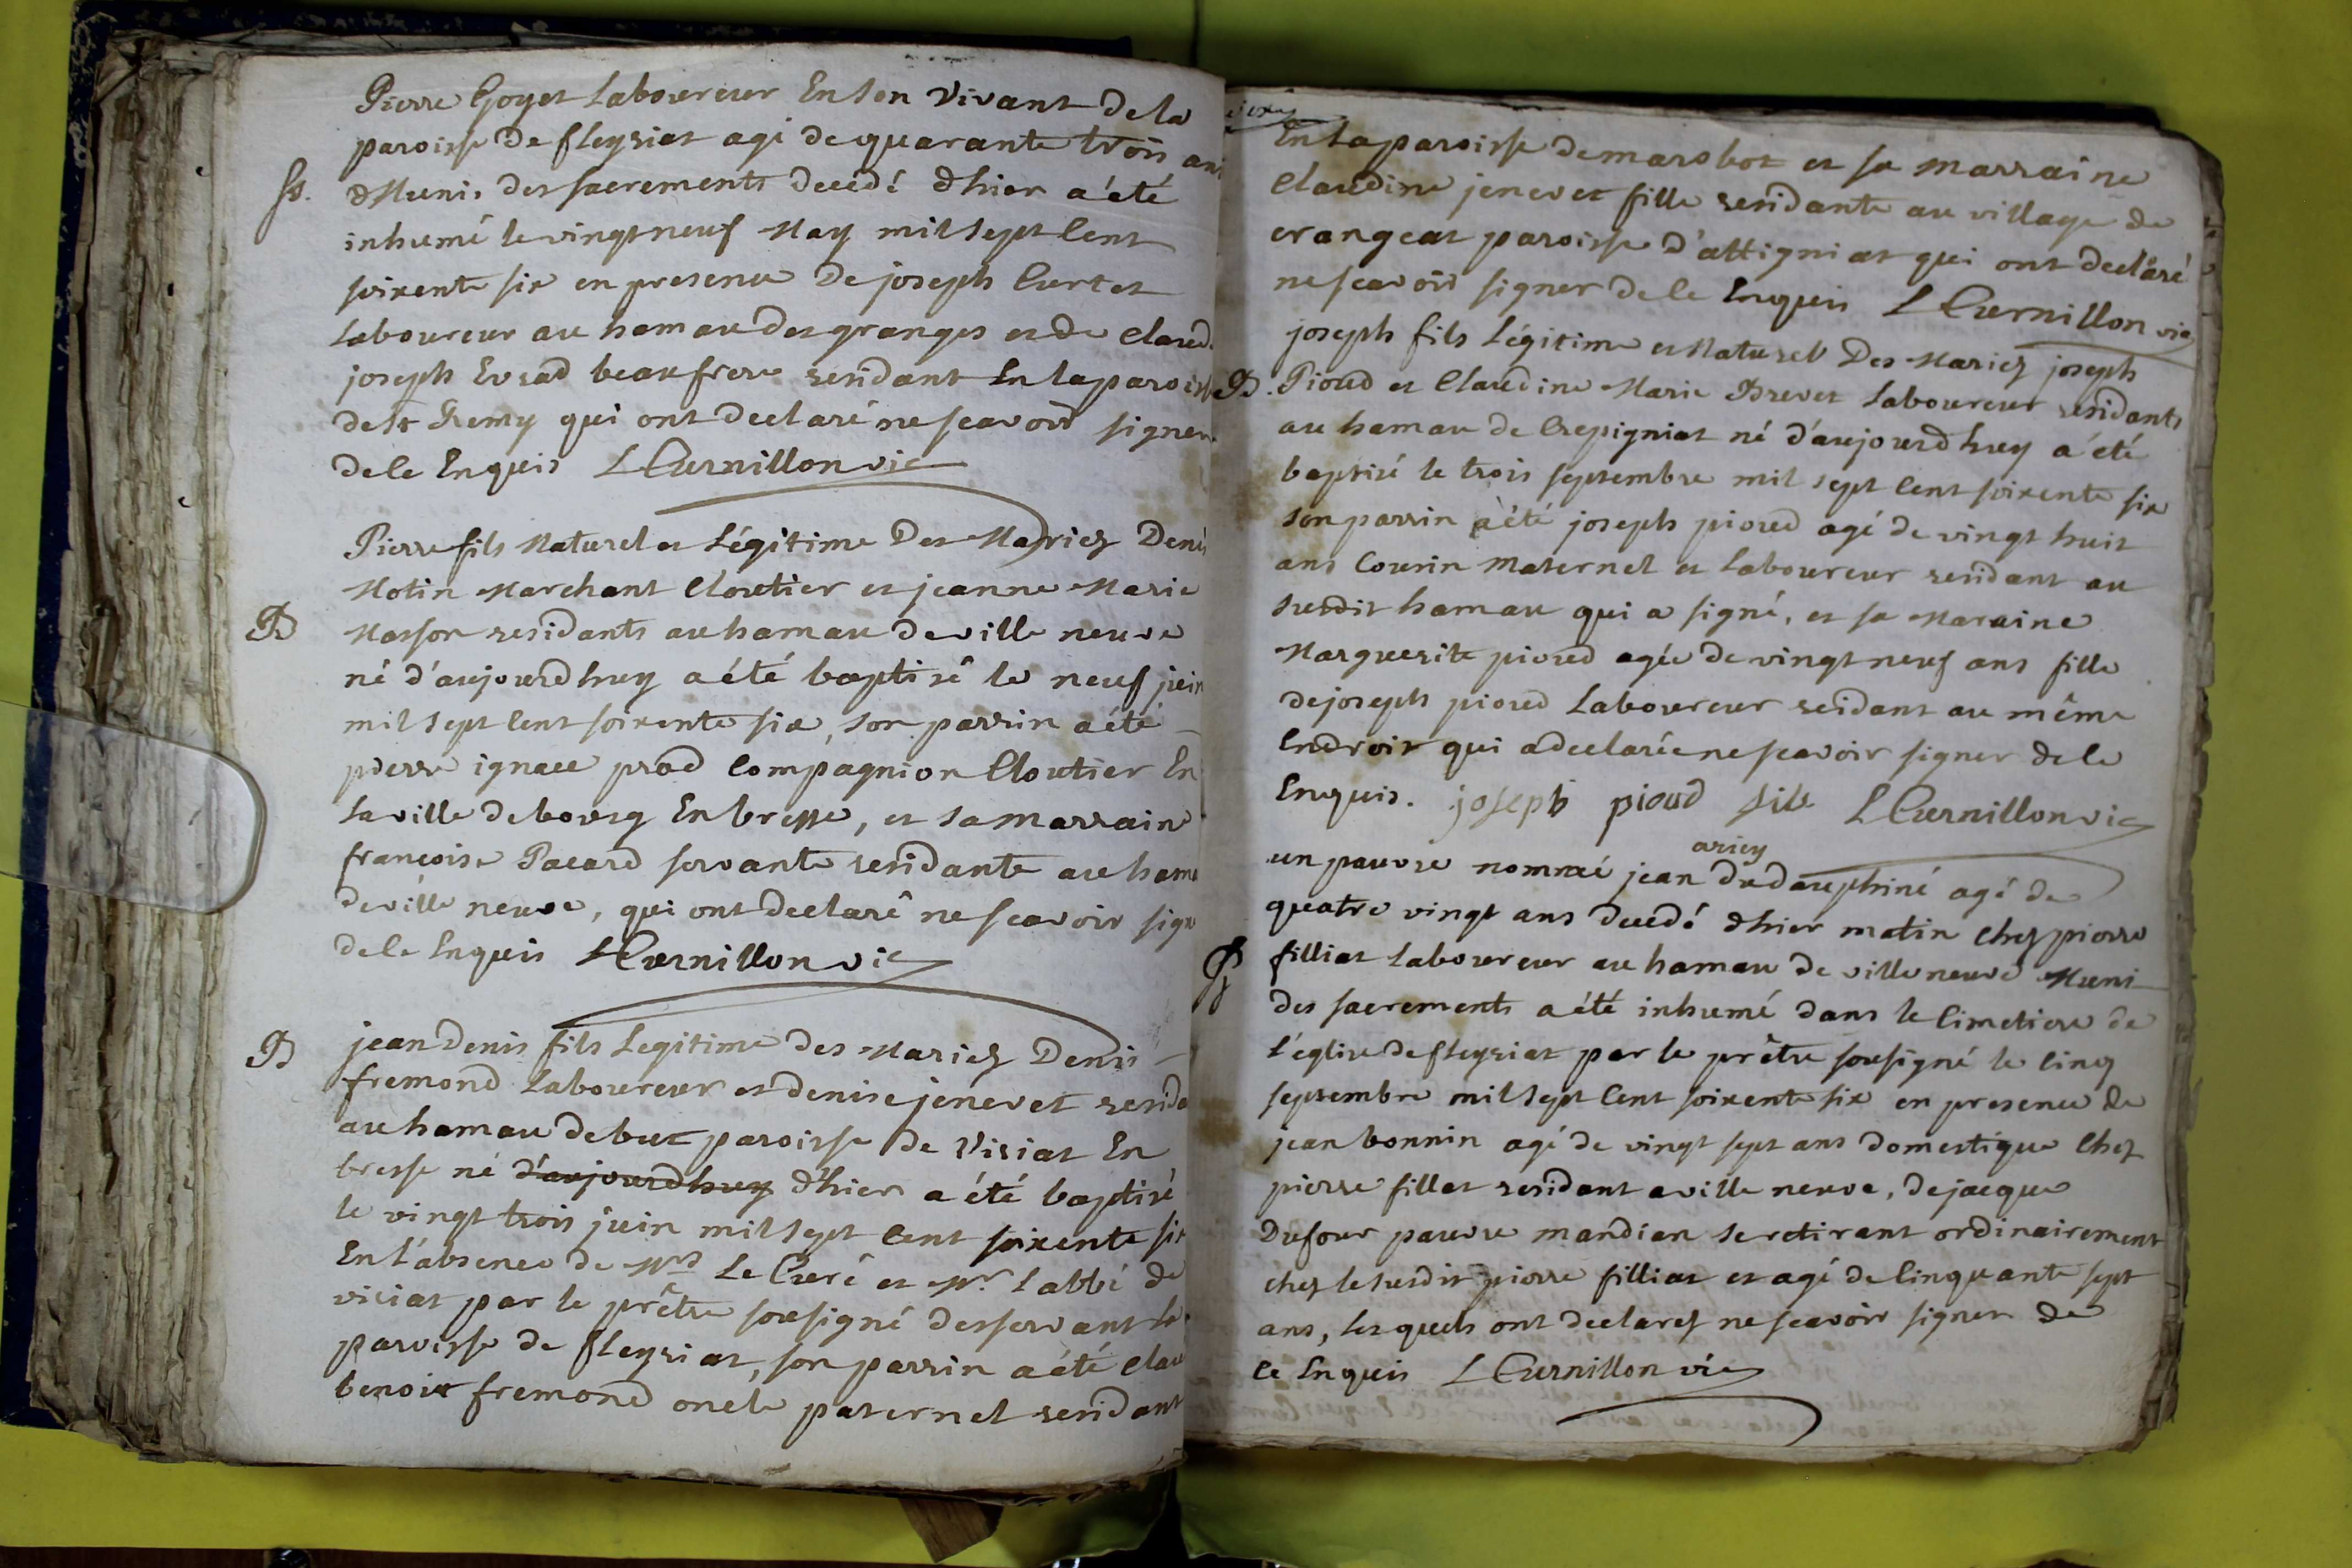 Pierre Goyet Laboureur En son vivant de la
paroisse de fleyriat agé de quarante trois ans
S. Munis des sacrements decedé d'hier a été
inhumé le vingt neuf May mil sept Cent
soixente six en presence de joseph Curtet
Laboureur au hamau des granges et de Claud
joseph Evrad beaufrere residant En la paroisse
de St Remy qui ont declaré ne scavoir signer
de ce Enquis L Curnillon vic
Pierre fils Naturel et Légitime Des Mariez Denis
Motin Marchant Cloutier et jeanne Marie
B Masson residants au hamau de ville neuve
né d'aujourdhuy a été baptisé le neuf juin
mil sept Cent soixente six, son parrin a été
pierre ignace prod Compagnion Cloutier En
la ville de bourg En bresse, et sa marraine
françoise Pacard servante residante au hama
de ville neuve, qui ont declaré ne scavoir sign
de ce Enquis L Curnillon vic
B jean Denis fils Legitime des Mariez Denis
fremond Laboureur et denise jenevet resida
au hamau de but paroisse de Viriat En
bresse né d'aujourdhuy d'hier a été baptisé
le vingt trois juin mil sept Cent soixente six
En l'absence de Mrs Le Curé et Mr. l'abbé de
viriat par le prêtre sousigné desservant la
paroisse de fleyriat, son parrin a été Clau
benoit fremond oncle paternel residant
En la paroisse de marsboz et sa marraine
Claudine jenevet fille residante au village de
crangeat paroisse d'attigniat qui ont declaré
ne scavoir signer de ce Enquis L Curnillon vic
joseph fils Légitime et Naturel Des Mariez joseph
B. Pioud et Claudine Marie Brevet Laboureur residants
au hamau de Crepigniat né d'aujourdhuy a été
baptisé le trois septembre mil sept Cent soixente six
son parrin a été joseph pioud agé de vingt huit
ans Cousin Maternel et Laboureur residant au
susdit hamau qui a signé, et sa Maraine
Marguerite pioud agée de vingt neuf ans fille
de joseph pioud Laboureur residant au même
Endroit qui a declarée ne scavoir signer de ce
Enquis. joseph pioud fils L Curnillon vic
ariey
un pauvre nommé jean du dauphiné agé de
quatre vingt ans decedé d'hier matin Chez pierre
S filliat Laboureur au hamau de ville neuve Muni
des sacrements a été inhumé dans le Cimetiere de
l'église de fleyriat par le prêtre sousigné le Cinq
septembre mil sept Cent soixente six en presence de
jean bonnin agé de vingt sept ans domestique Chez
pierre fillat residant a ville neuve, de jacque
Dufour pauvre mandian se retirant ordinairement
chez le susdit pierre filliat et agé de Cinquante sept
ans, les quels ont declarez ne scavoir signer de
ce Enquis L Curnillon vic